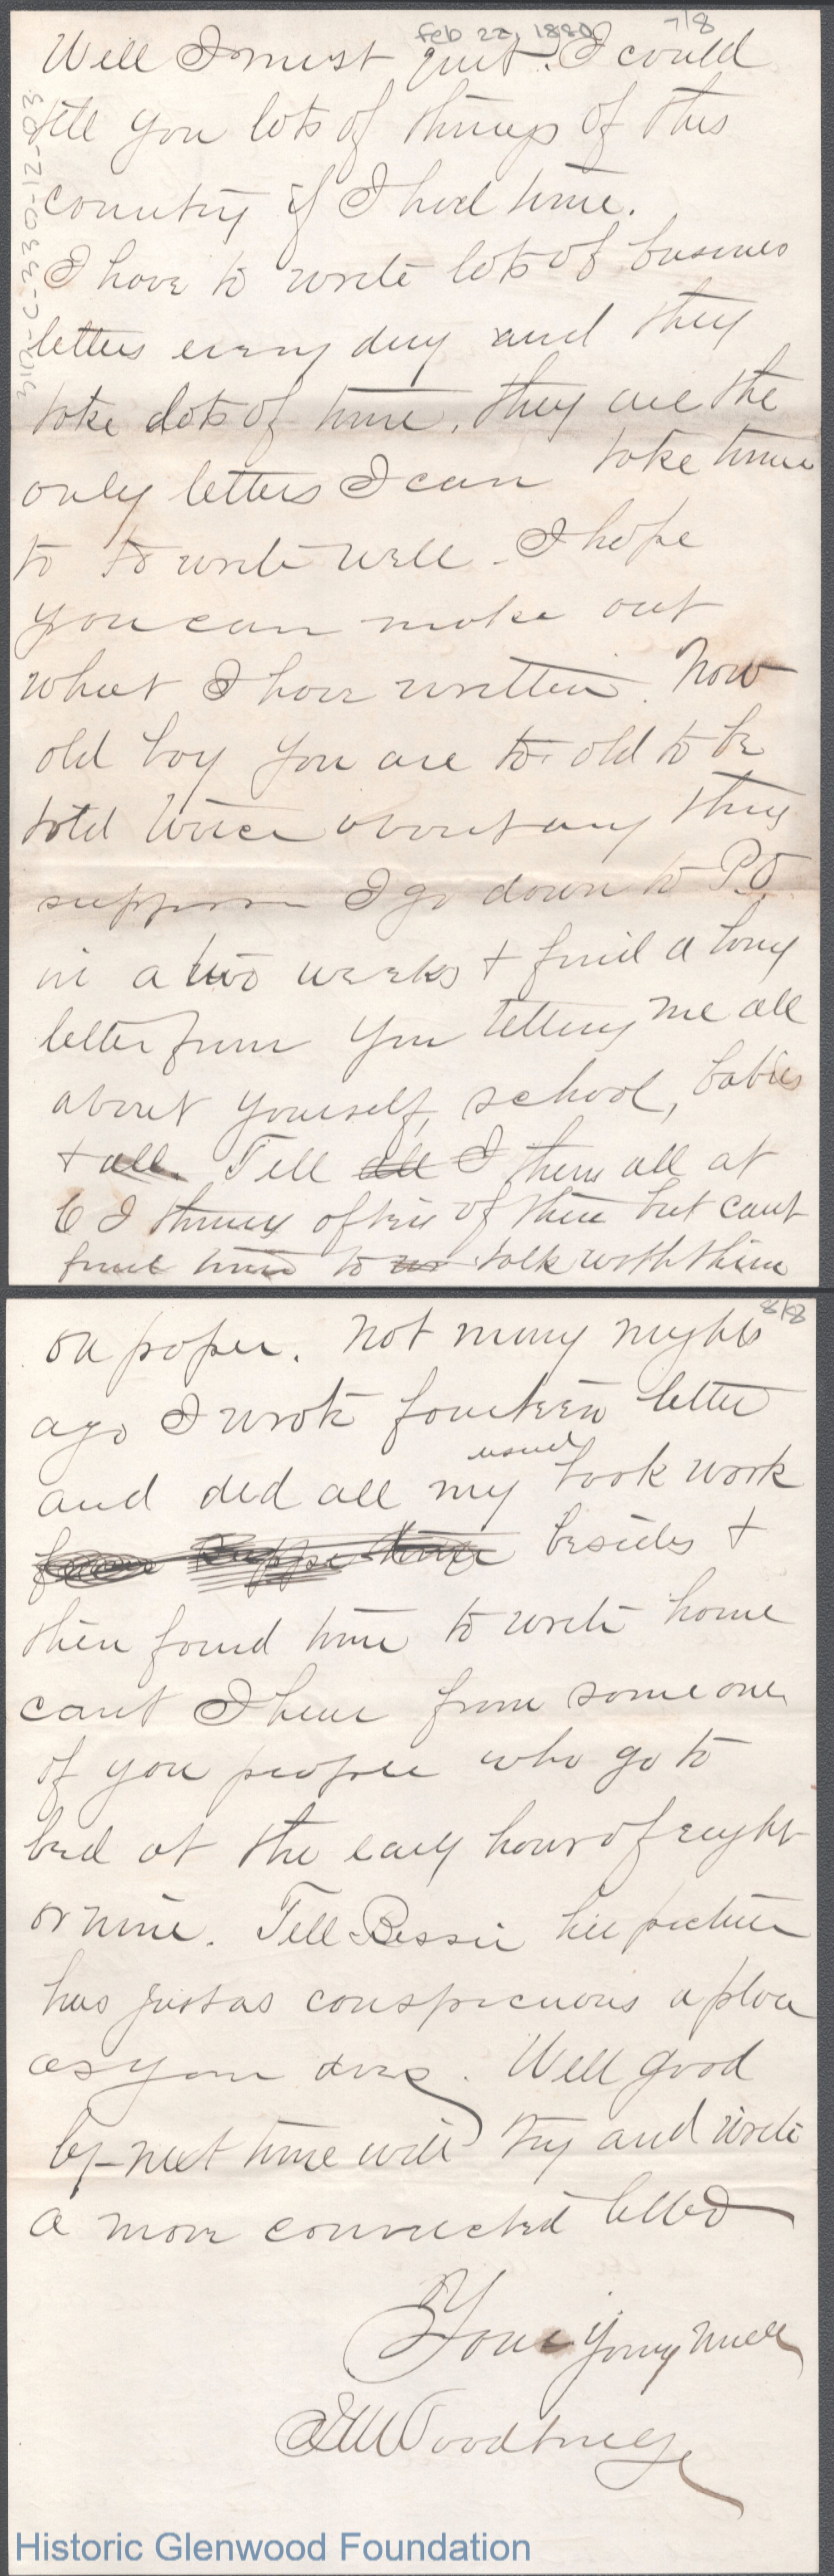 Feb 22, 1880 7/8
Well I must quit. I could
tell you lots of things of this
country if I had time.
I have to write lots of business
letters every day and they
take lots of time, they are the
only letters I can take time
to to write well. I hope
you can make out
what I have written. Now
old boy you are to old to be
told twice about any thing
suppose I go down to P.O.
in a two weeks & find a long
letter from you telling me all
about yourself, school, babies
& all. Tell all I them all at
I think often of them but cant
find time to talk with them
8/8
on paper. Not many nights
ago I wrote fourteen letter
usual
and did all my book work
besides &
then found time to write home
cant I hear from some one
of you people who go to
bed at the early hour of eight
or nine. Tell Bessie her picture
has just as conspicuous a place
as your does. Well good
by - next time will try and write
a more connected letter
Your Young Uncle
Woodbridge
Historic Glenwood Foundation